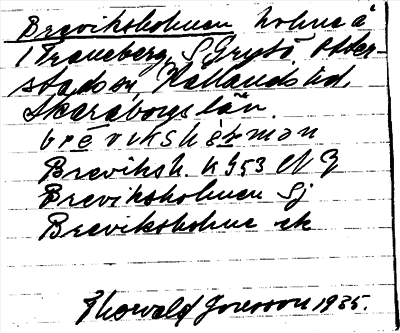 Breviksholmen holme å
i Traneberg, S Grytö, Otter-
stads sn, Kållands hd,
Skaraborgs län.
Breviksh. K 953 N Z
Breviksholmen Sj
Breviksholme ek
Thorvald Jonsson 1935.